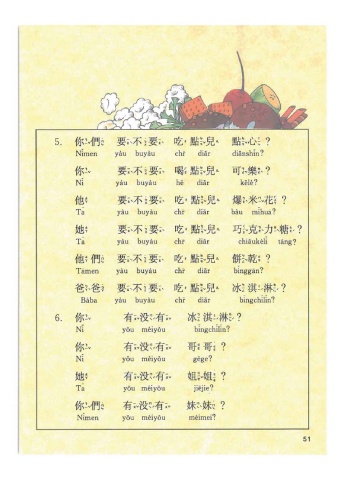 5. 你們 要不要 吃點兒 點心？
Nǐmen yàu buyàu chr̄ diǎr diǎnshin？
你 要不要 喝點兒 可樂？
Nǐ yàu buyàu hē diǎr kělè？
他 要不要 吃點兒 爆米花？
Tā yàu buyàu chr̄ diǎr bàu mǐhuā？
她 要不要 吃點兒 巧克力糖？
Tā yàu buyàu chr̄ diǎr chiǎukèlì táng？
他們 要不要 吃點兒 餅乾？
Tāmen yàu buyàu chr̄ diǎr bǐnggān？
爸爸 要不要 吃點兒 冰淇淋？
Bàba yàu buyàu chr̄ diǎr bīngchílín？
6. 你 有沒有 冰淇淋？
Nǐ yǒu méiyǒu bīngchílín？
你 有沒有 哥哥？
Nǐ yǒu méiyǒu gēge？
她 有沒有 姐姐？
Tā yǒu méiyǒu jiějie？
你們 有沒有 妹妹？
Nǐmen yǒu méiyǒu mèimei？
51